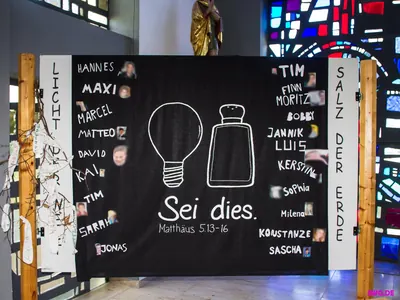 LICHT
HANNES
MAXI
MARCEL
MATTEO
DAVID
KAI
TIM
SARAH
JONAS
Sei dies.
Matthäus 5.13-16
TIM
FINN
MORITZ
BOBBY
JANNIK
LUIS
KERSTIN
Sophia
Milena
KONSTANZE
SASCHA
SALZ DER ERDE